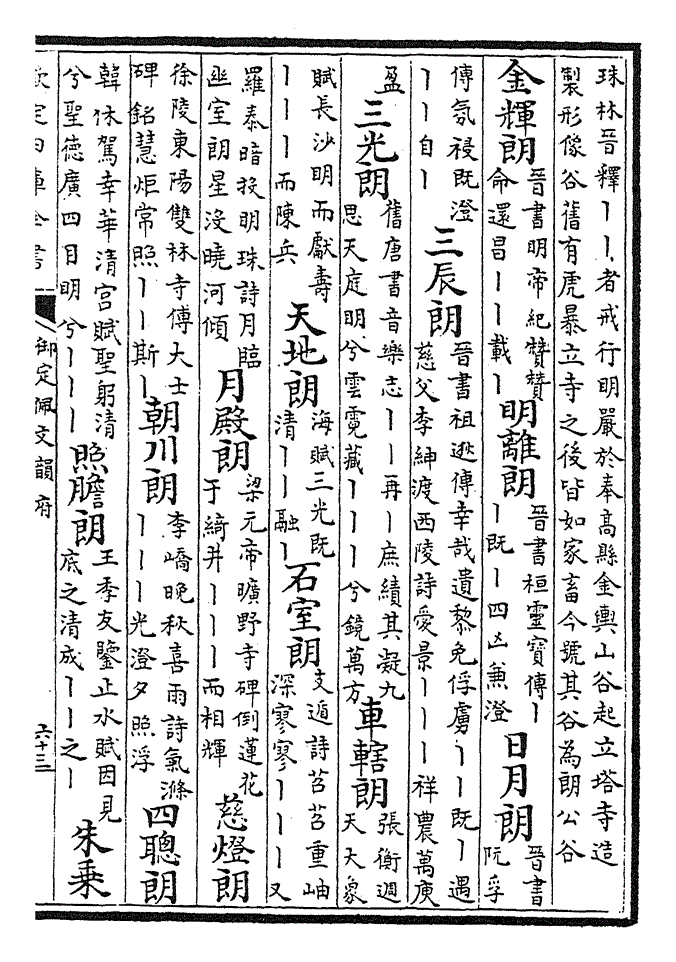 珠林晉釋丨丨者戒行明嚴於奉高縣金輿山谷起立塔寺造
製形像谷舊有虎暴立寺之後皆如家畜今號其谷為朗公谷
金輝朗
晉書明帝紀贊贊
命還昌丨丨載丨
明離朗
晉書桓靈寶傳丨
丨既丨四凶兼澄
日月朗
晉書
阮孚
傳氛祲既澄
丨丨自丨
三辰朗
晉書祖逖傳幸哉遺黎免俘虜丨丨既丨遇
慈父李紳渡西陵詩愛景丨丨丨祥農萬庾
盈
三光朗
舊唐書音樂志丨丨再丨庶績其凝九
思天庭明兮雲霓藏丨丨丨兮鏡萬方
車轄朗
張衡週
天大象
賦長沙明而獻壽
丨丨丨而陳兵
天地朗
海賦三光既
清丨丨融丨
石室朗
支遁詩苕苕重岫
深寥寥丨丨丨又
羅泰暗投明珠詩月臨
幽室朗星沒曉河傾
月殿朗
梁元帝曠野寺碑倒蓮花
于綺井丨丨丨而相輝
慈燈朗
徐陵東陽雙林寺傅大士
碑銘慧炬常照丨丨斯丨
朝川朗
李嶠晚秋喜雨詩氣滌
丨丨丨光澄夕照浮
四聰朗
韓休駕幸華清宮賦聖躬清
兮聖德廣四目明兮丨丨丨
照膽朗
王季友鑒止水賦因見
底之清成丨丨之丨
朱乘
欽定四庫全書
御定佩文韻府
六十三